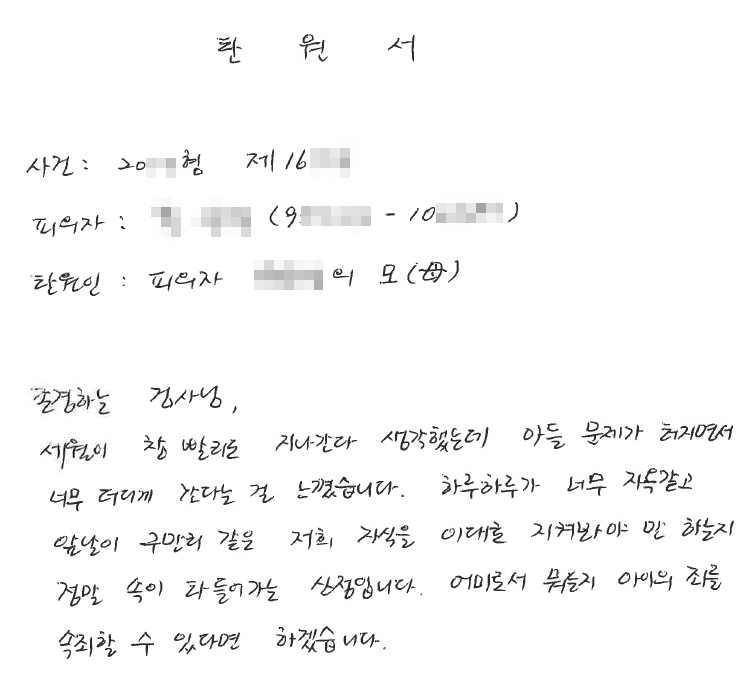 탄 원 서
사건 : 20 형 제16
피의자 : (9 - 10 )
탄원인 : 피의자 의 모(母)
존경하는 검사님,
세월이 참 빨리도 지나간다 생각했는데 아들 문제가 터지면서
너무 더디게 간다는 걸 느꼈습니다. 하루하루가 너무 지옥같고
앞날이 구만리 같은 저희 자식을 이대로 지켜봐야 만 하는지
정말 속이 타 들어가는 심정입니다. 어미로서 뭐든지 아이의 죄를
속죄할 수 있다면 하겠습니다.